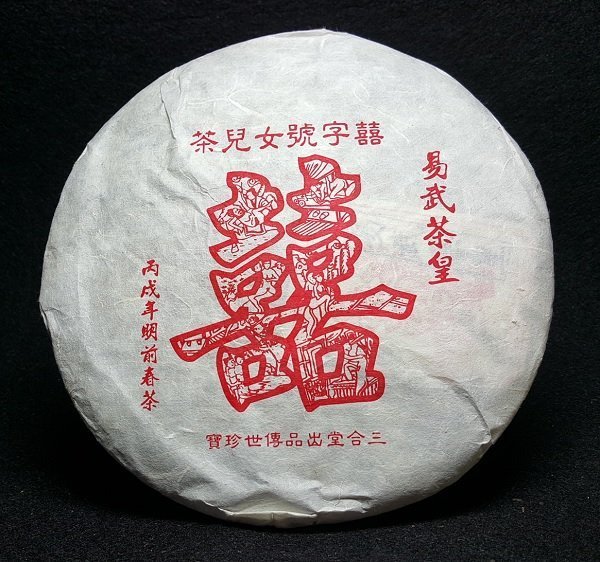 囍字號女兒茶
易武茶皇
囍
丙戌年明前春茶
三合堂出品傳世珍寶